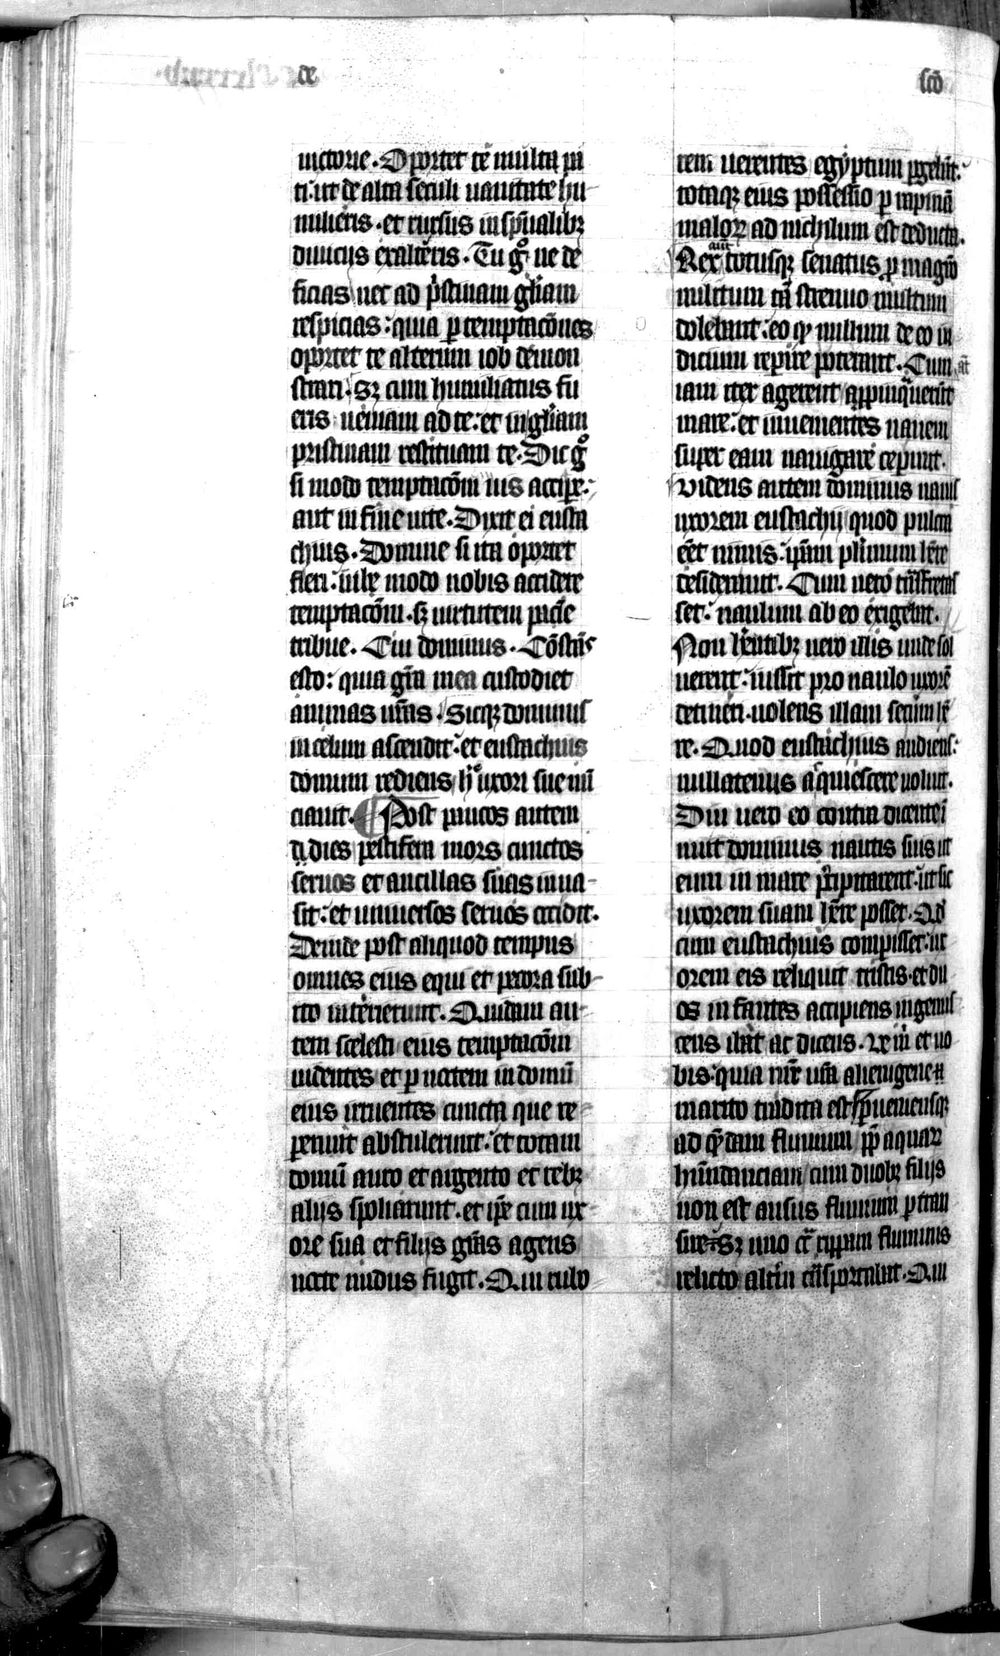 de
scō
uictorie. Oportet te multa pa
ti: ut de alta seculi uanitate hu-
milieris. et rursus in spūalibꝫ
diuicijs exalteris. Tu gͦ ne de
ficias nec ad pͥstinam gl̄iam
respicias: quia p temptacōnes
oportet te alterum iob demon
strari. sꝫ cum humiliatus fu
eris ueniam ad te: et in gl̄iam
pristinam restituam te. Dic gͦ
si modo temptacōm uis accipe:
aut in fine uite. Dixit ei eusta
chius. Domine si ita oportet
fieri: iube modo nobis accidere
temptacōm. sꝫ uirtutem paciē
tribue. Cui dominus. Cōstās
esto: quia grā mea custodiet
animas ur̄as. Sicqꝫ dominus
in celum ascendit: et eustachius
domum rediens hͦ uxori sue nū
ciauit. Post paucos autem
dies pestifera mors cunctos
seruos et ancillas suas inua-
sit: et uniuersos seruos occidit.
Deinde post aliquod tempus
omnes eius equi et pecora sub-
ito interierunt. Quidam au-
tem scelesti eius temptacōm
uidentes et p noctem in domū
eius irruentes cuncta que re-
perierūt abstulerunt: et totam
domū auro et argento et rebꝫ
alijs spoliarunt. et ip̄e cum ux-
ore sua et filijs gr̄as agens
nocte nudus fugit. Qui rubo
rem uerentes egyptum pgebāt:
totaqꝫ eius possessio p rapinā
malorꝝ ad nichilum est deducta.
aūt
Rex totusqꝫ senatus p magrō
militum tā strenuo multum
dolebant: eo qꝫ nullum de eo in
dicium repire poterant. Cum at̄
iam iter agerent appinquerūt
mare: et inuenientes nauem
super eam nauigare ceperunt.
Videns autem dominus nauis
uxorem eustachij quod pulcra
eēt nimis: ip̄am plimum hr̄e
desiderauit. Cum uero tn̄sfretas
set: naulum ab eo exigebat.
Non hn̄tibꝫ uero illis unde sol
uerent: iussit pro naulo uxorē
detineri. uolens illam secum hr̄
re. Quod eustachius audiens:
nullatenus acquiescere uoluit.
Diu uero eo contra dicente
nuit dominus nautis suis ut
eum in mare pͥcipitarent: ut sic
uxorem suam hr̄e posset. Qd̄
cum eustachius compisset: ux
orem eis reliquit tristis. et du
os infantes accipiens ingemis
cens ibat ac dicens. Ve m̄ et uo
bis: quia mr̄ ur̄a alienigene
marito tradita est. pueniensqꝫ
ad qdam fluuium pp̄ aquarꝝ
habundanciam cum duobꝫ filijs
non est ausus fluuium p tran
sire. Sꝫ uno cͥ ripam fluminis
relicto alterū trāsportabat. Qui